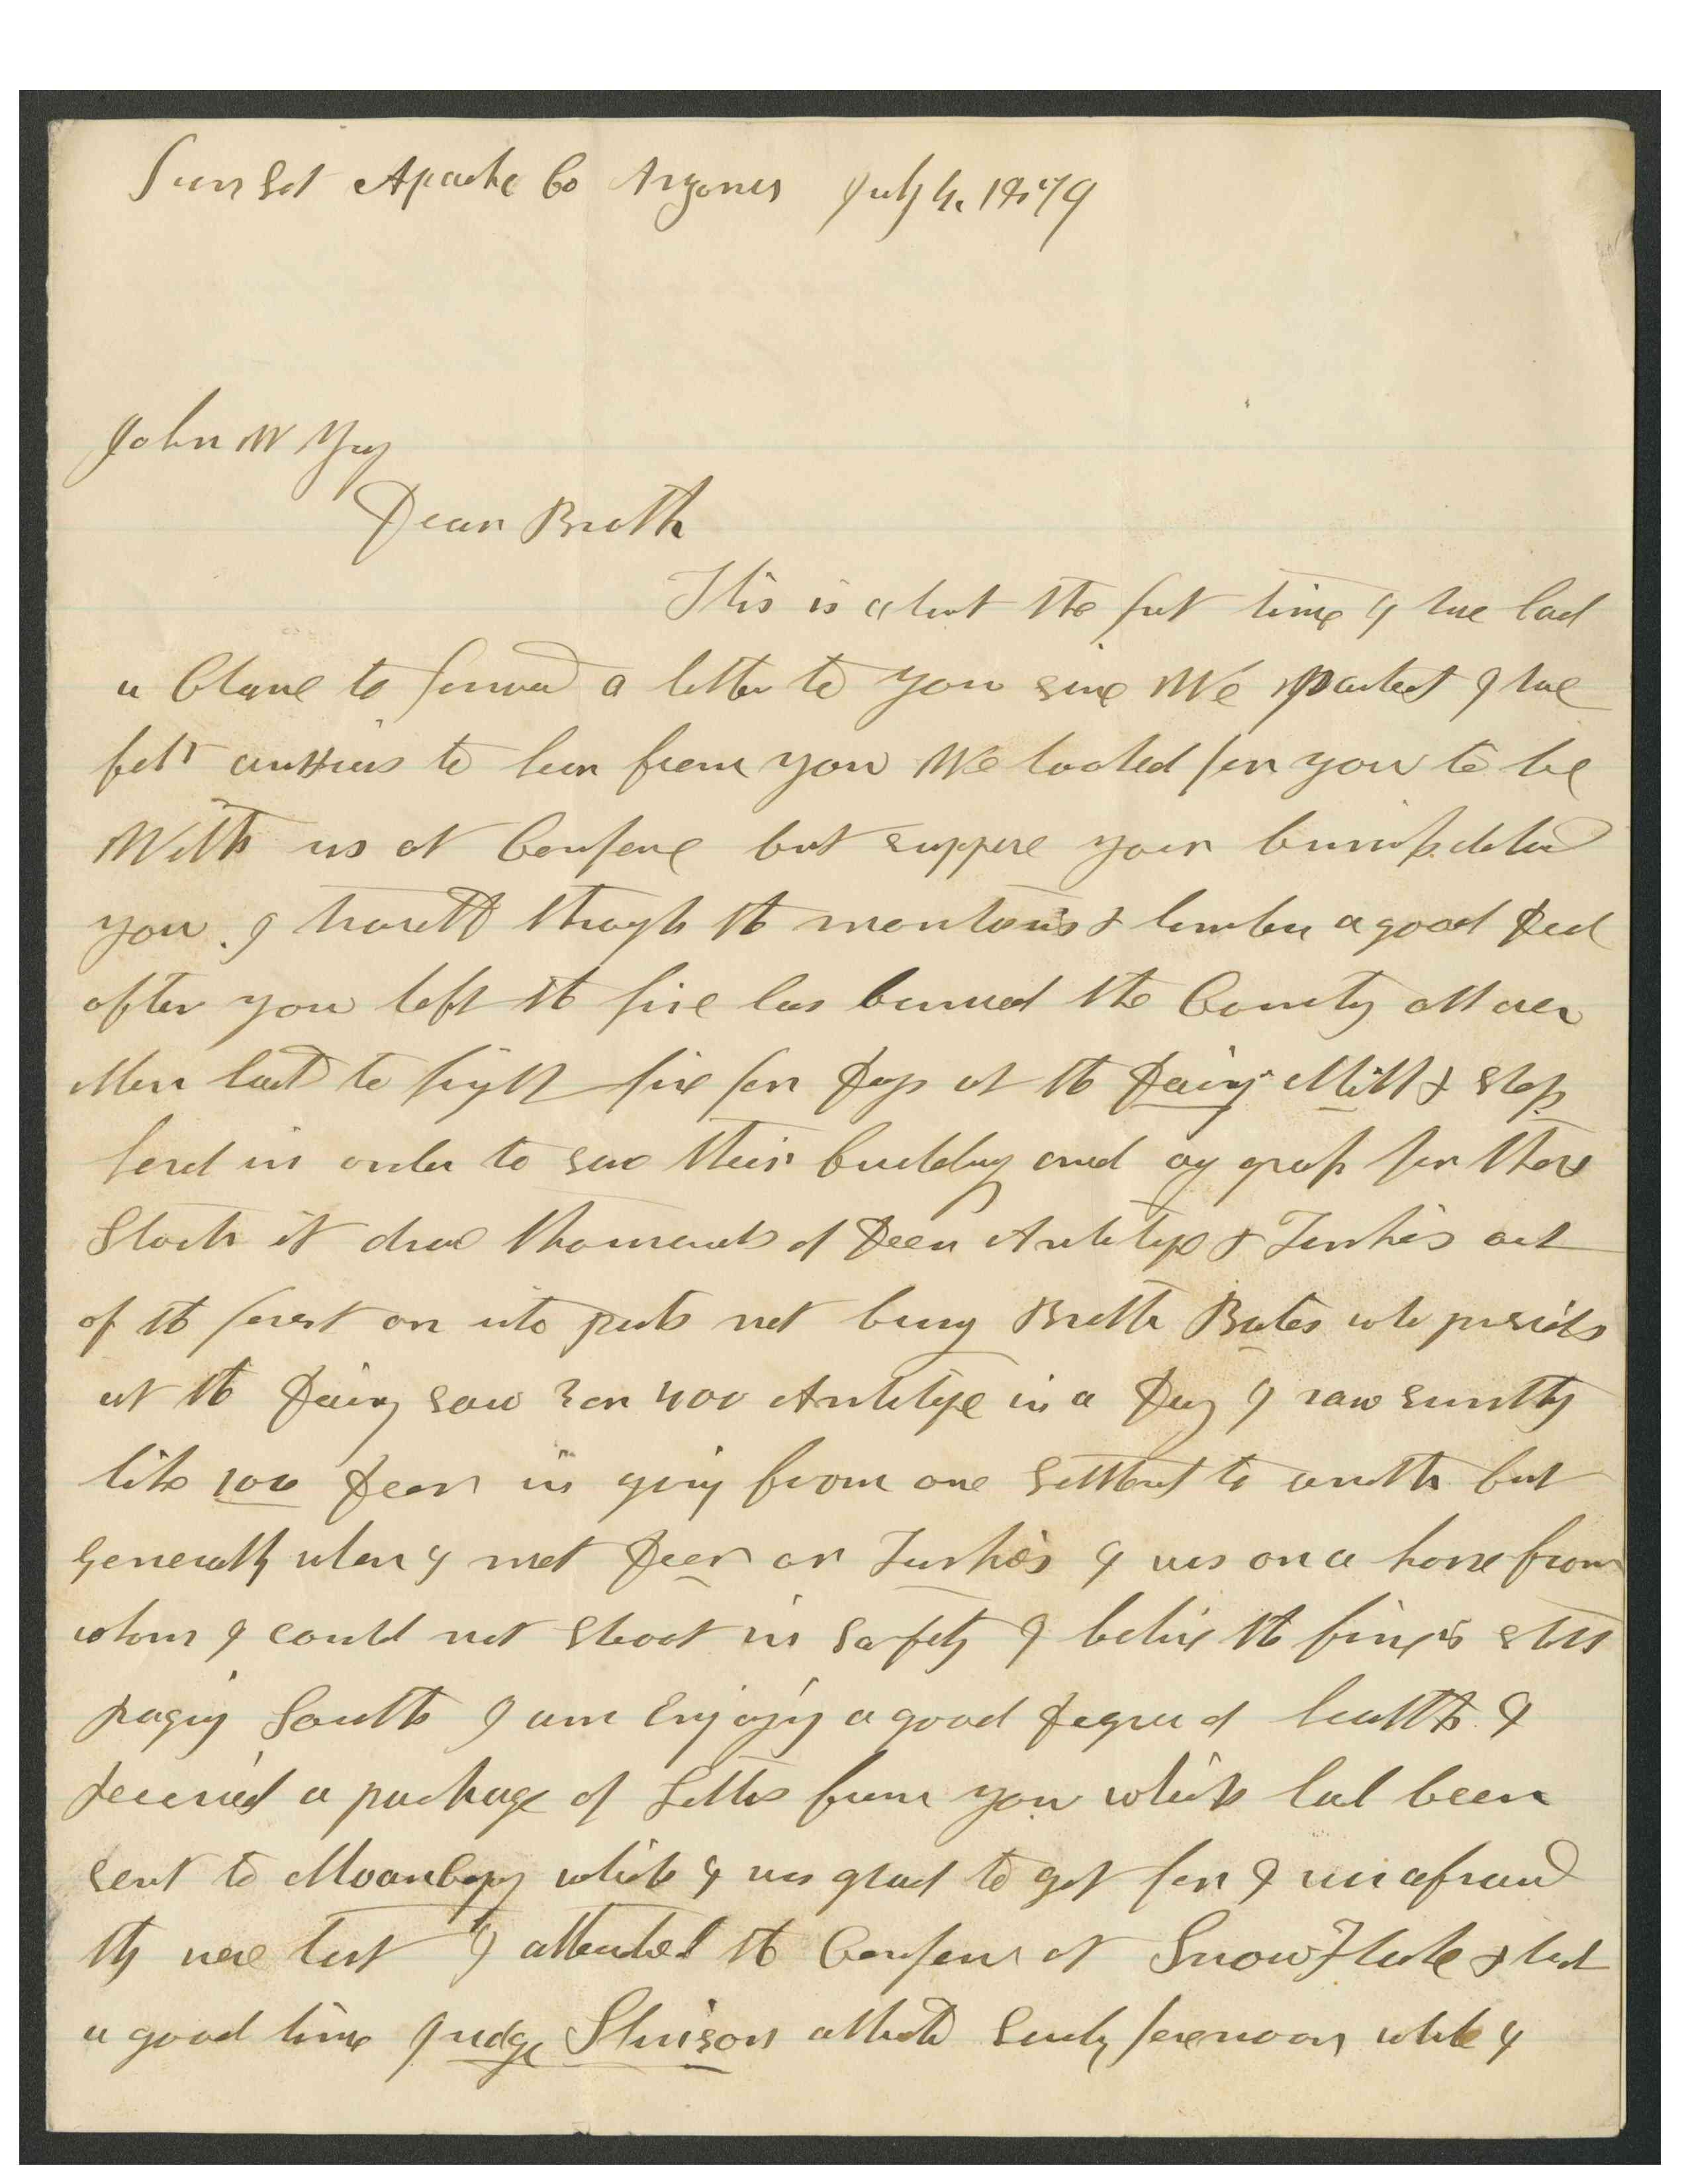 Sun Set Apache Co Arzona July 4, 1879
John W Yng
Dear Broth
This is about the fst time I hve had
a Chane to forwad a letter to you sine We parted I hve
felt anxtius to hear from you We looked for you to be
With us at Confere but suppose your busniss detaid
you. I traveld through the mountains & timber a good Deal
after you left the fire has burned the County all over
Men had to fight fire for Days at the Dairy Mill & Step
ford in order to save their building and any grass for there
Stock it drove thousands of Deer Antelope & Turkies out
of the forest on into parts not burng Brothr Bates who presids
at the Dairy saw 3 or 400 Antelope in a Day I saw sumthg
like 100 Deer in going from one settlemt to anothr but
Generally when I met Deer or Turkies I was on a horse from
whom I could not shoot in safety I believe the fire is still
raging South I am Enjoyig a good Degree of health I
Received a package of Letters from you which had been
sent to Moancopy which I was glad to get for I was afraid
thy were lost I attended the Confern at Snow Flake & had
a good time Judge Stinson attend Sundy forenoon while I